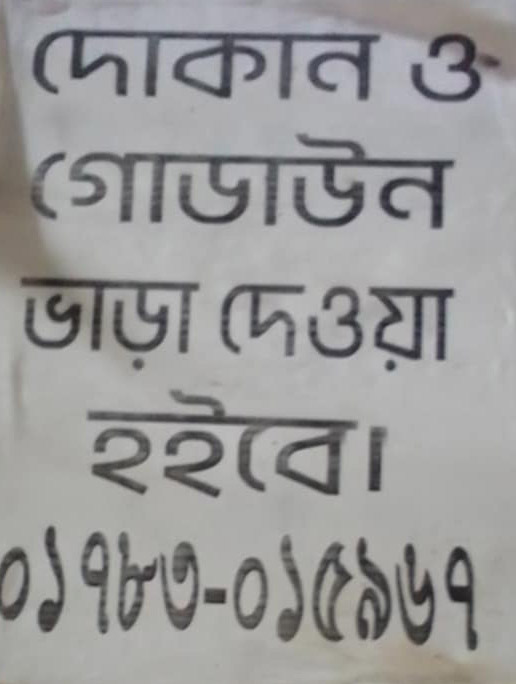 দোকান ও
গোডাউন
ভাড়া দেওয়া
হইবে।
০১৭৮৩-০১৫৯৬৭